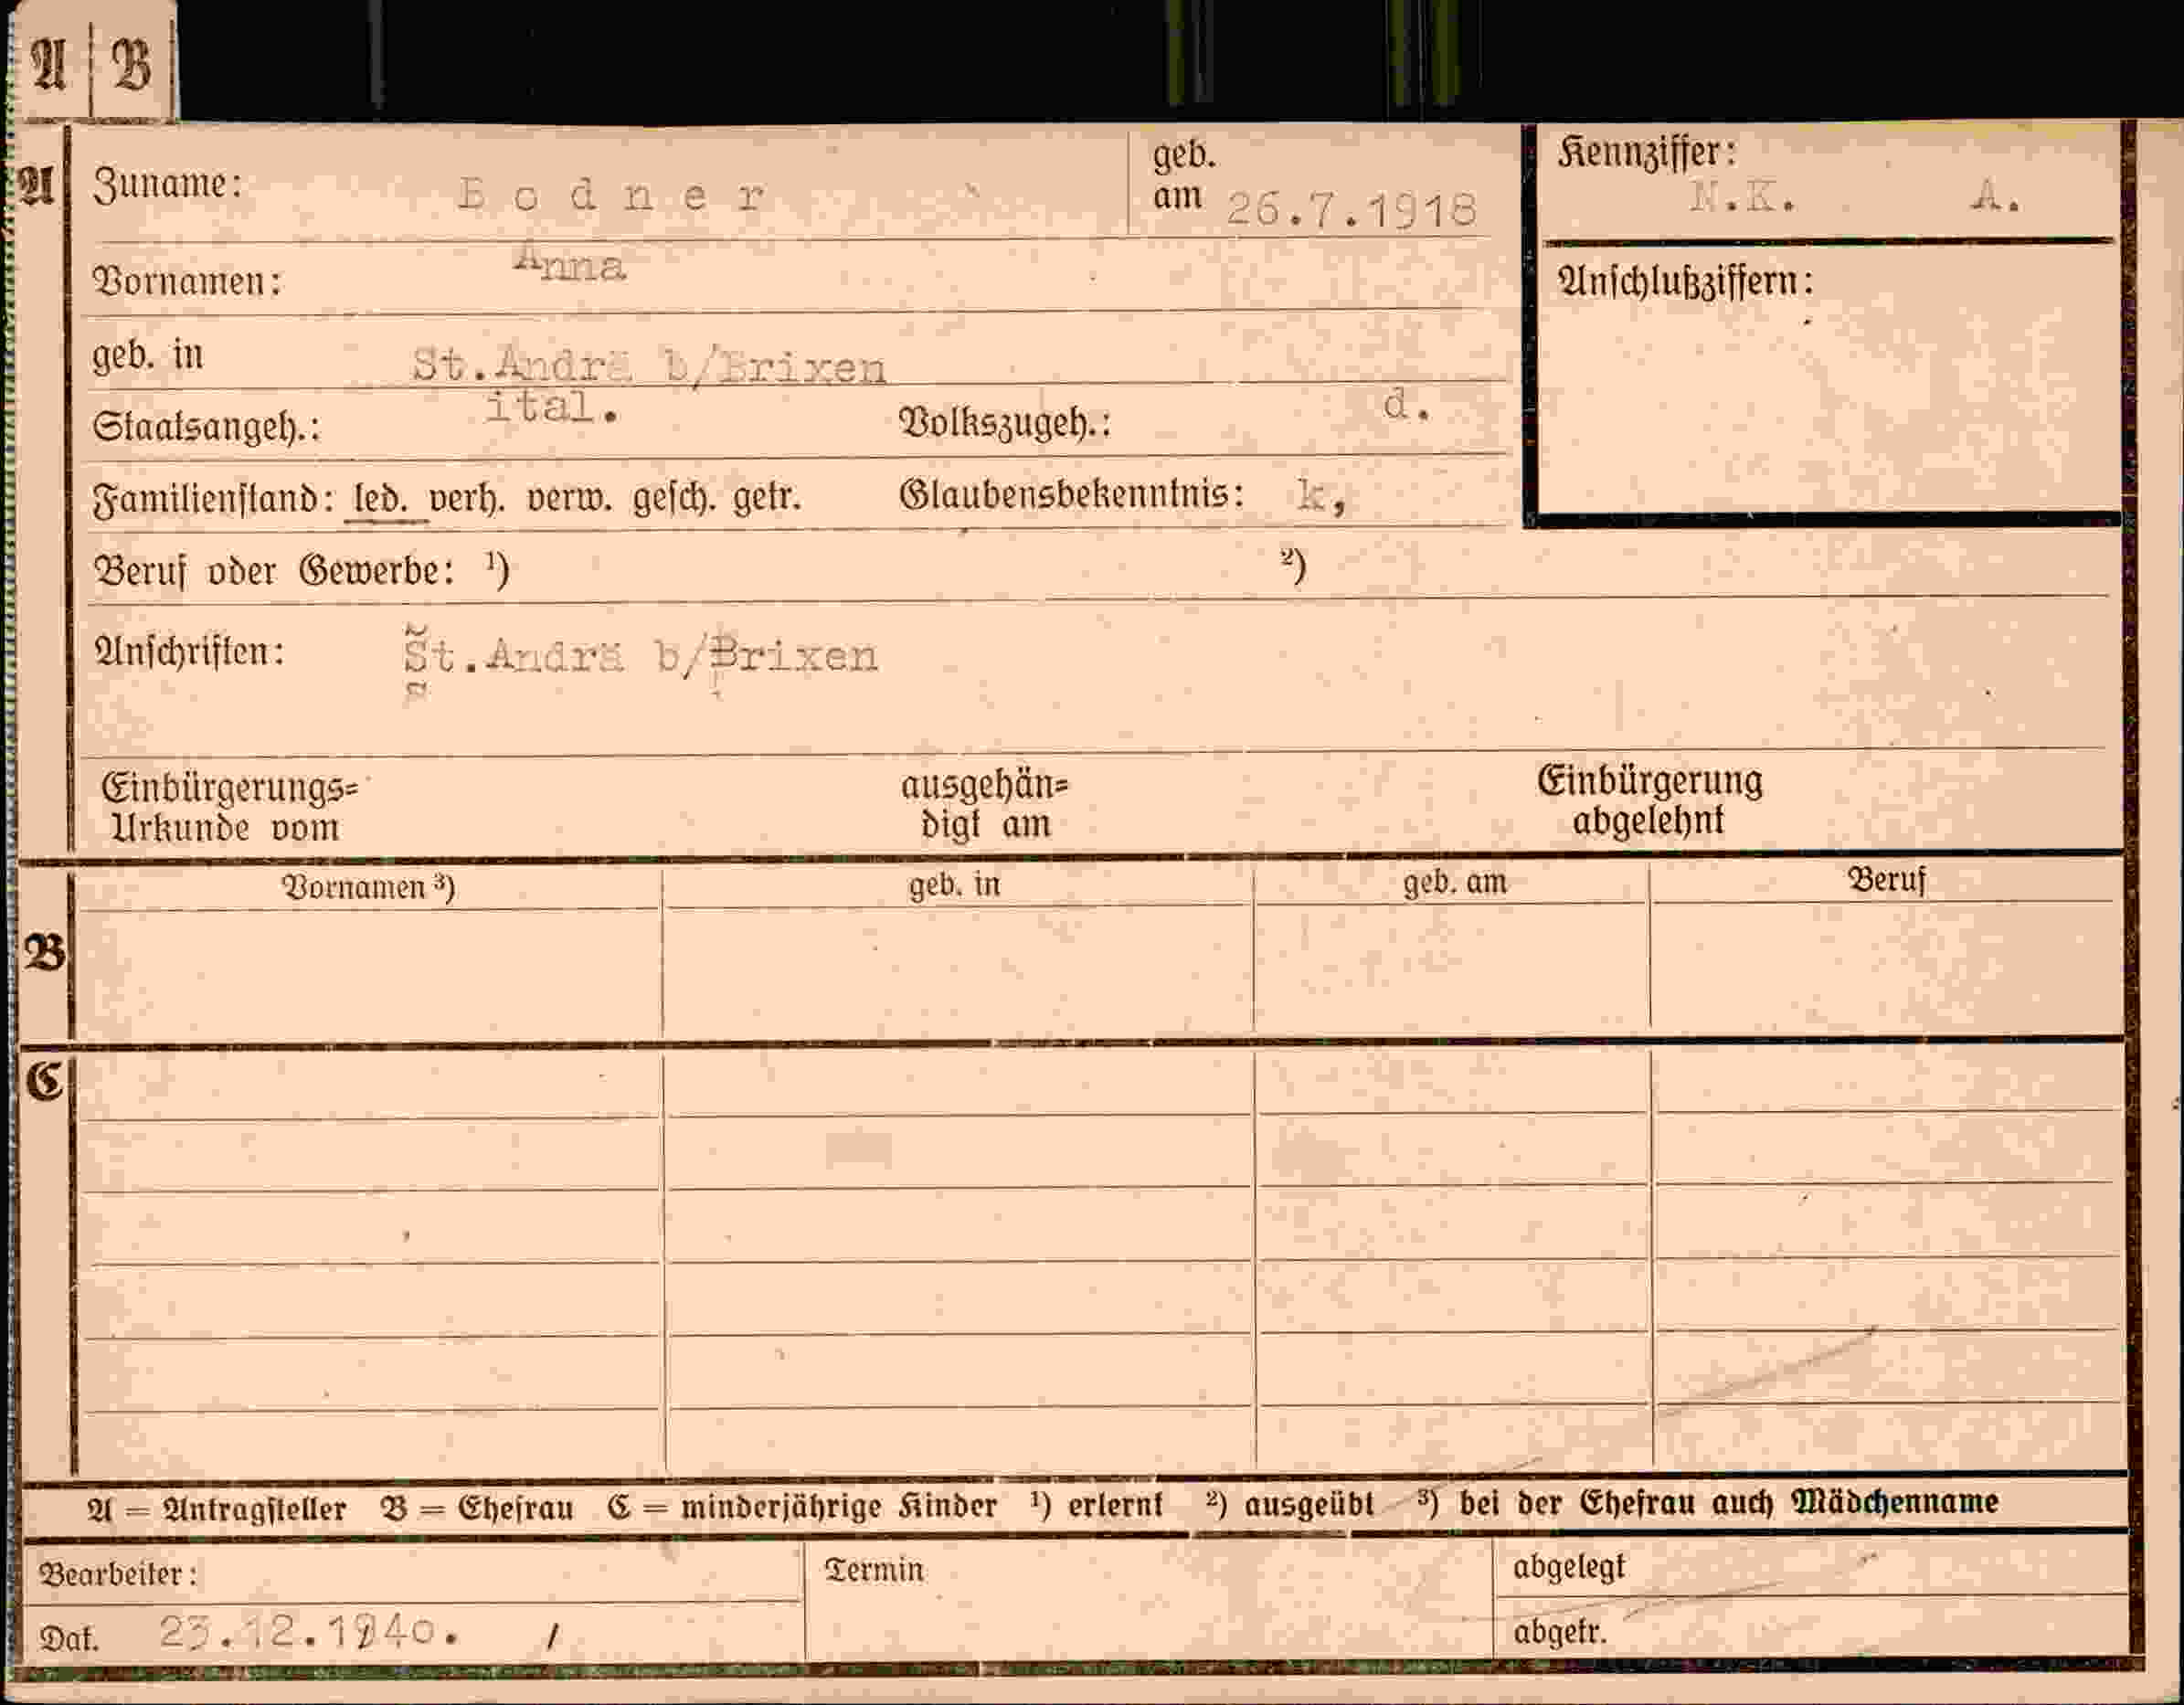 A | B
A Zuname: Bodner geb. am 26.7.1918 Kennziffer: N.K. A.
Vornamen: Anna Anschlußziffern:
geb. in St.Andrä b/Brixen
Staatsangeh.: ital. Volkszugeh.: d.
Familienstand: led. verh. verw. gesch. getr. Glaubensbekenntnis: k,
Beruf oder Gewerbe: ¹) ²)
Anschriften: St.Andrä b/Brixen
Einbürgerungs= ausgehän= Einbürgerung
Urkunde vom digt am abgelehnt
Vornamen ³) geb. in geb. am Beruf
B
C
A = Antragsteller B = Ehefrau C = minderjährige Kinder ¹) erlernt ²) ausgeübt ³) bei der Ehefrau auch Mädchenname
Bearbeiter: Termin abgelegt
Dat. 23.12.1940. / abgetr.